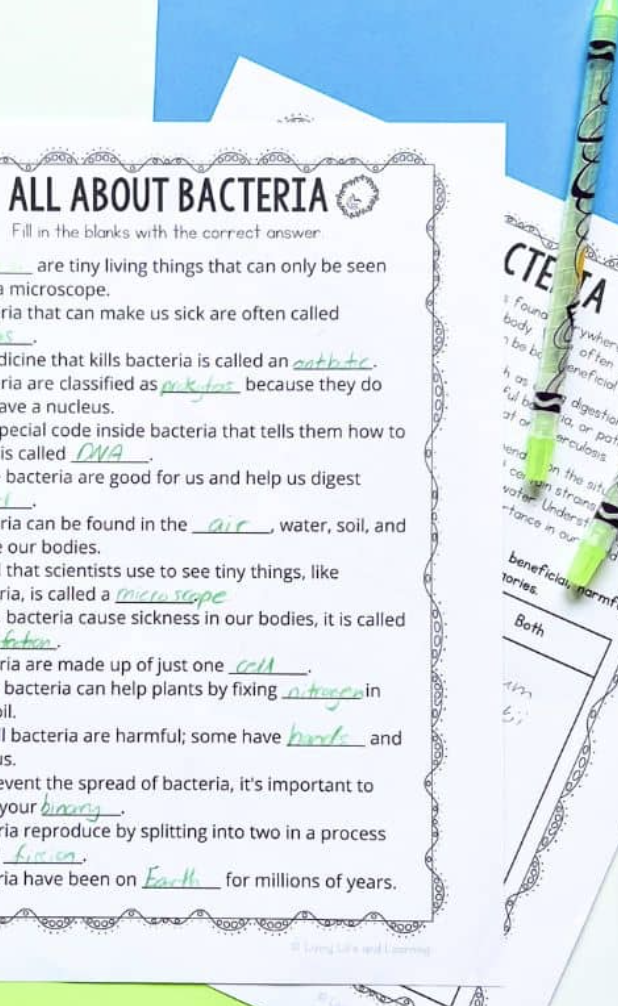 ALL ABOUT BACTERIA
Fill in the blanks with the correct answer.
are tiny living things that can only be seen
a microscope.
ria that can make us sick are often called
s.
dicine that kills bacteria is called an
ria are classified as because they do
ave a nucleus.
pecial code inside bacteria that tells them how to
is called DNA.
bacteria are good for us and help us digest
.
ria can be found in the air, water, soil, and
e our bodies.
l that scientists use to see tiny things, like
ria, is called a microscope
bacteria cause sickness in our bodies, it is called
.
ria are made up of just one cell.
bacteria can help plants by fixing nitrogen in
oil.
ll bacteria are harmful; some have hands and
us.
event the spread of bacteria, it's important to
your binary.
ria reproduce by splitting into two in a process
fission.
ria have been on Earth for millions of years.
© Living Life and Learning
CTE IA
s found rywher
body often
n be b eneficial
h as digestion
ful b ia, or pat
at or erculosis
end on the sit
cer in strains
water. Underst
rtance in our
beneficial, harmf
ories.
Both